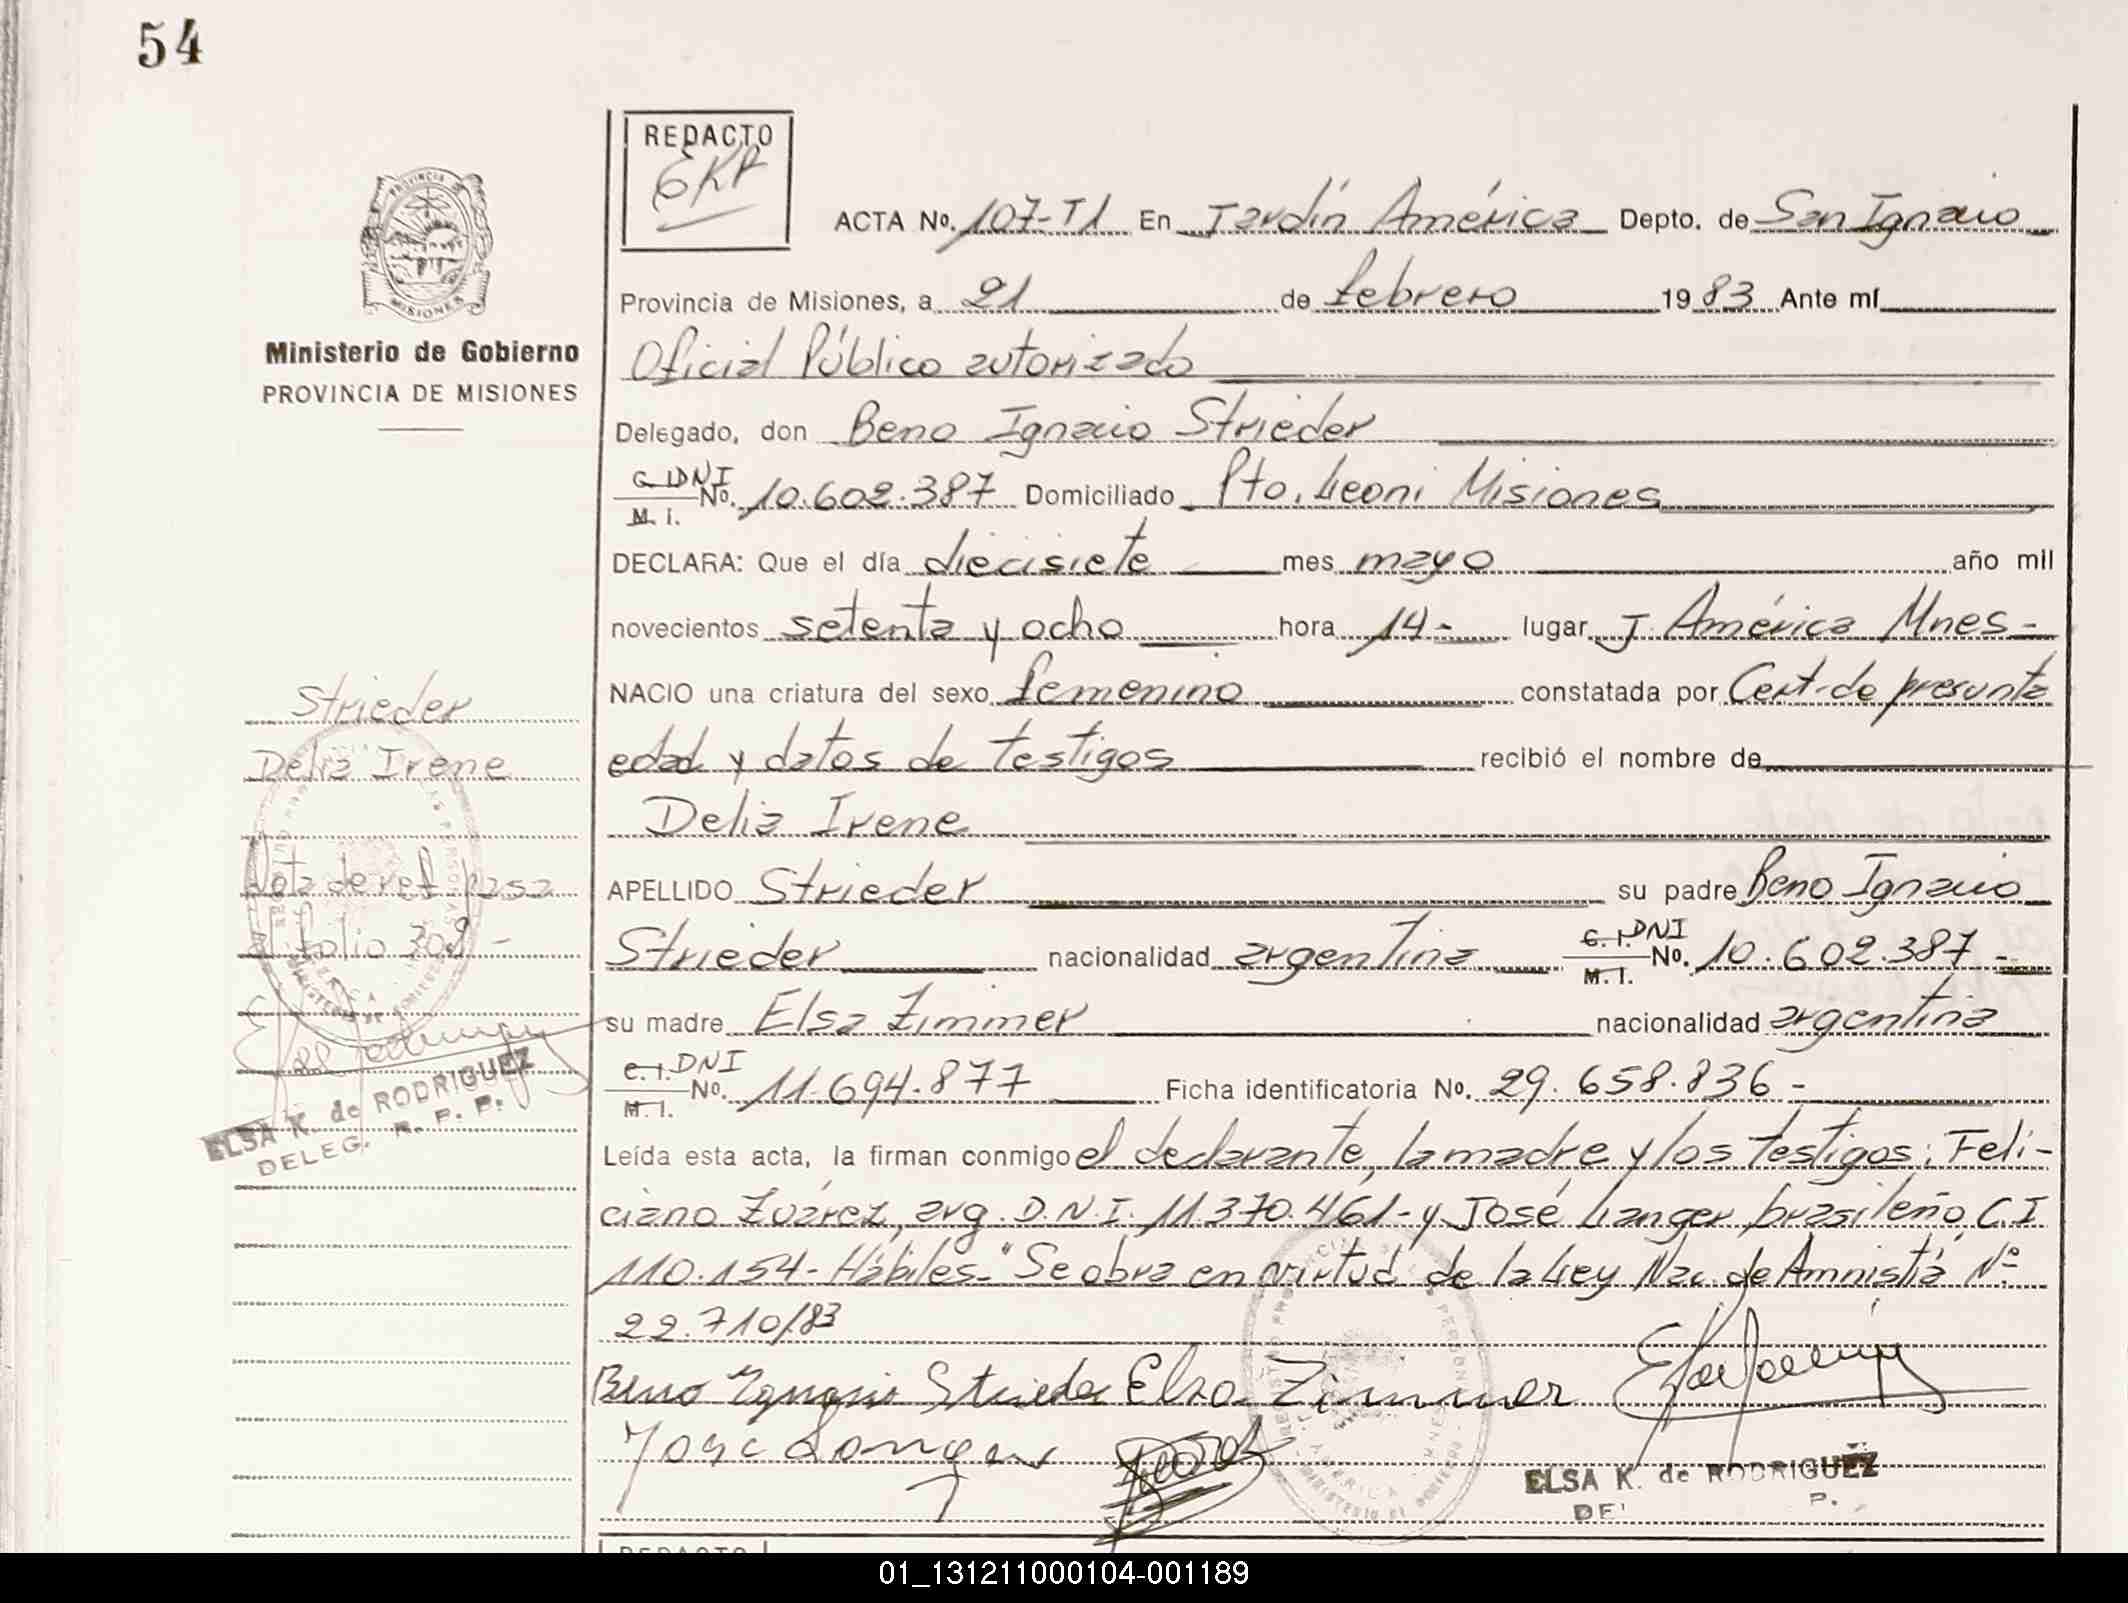 54
REDACTO
EKR
PROVINCIA DE
MISIONES
Ministerio de Gobierno
PROVINCIA DE MISIONES
ACTA No. 107-T1 En Jardín América Depto. de San Ignacio
Provincia de Misiones, a 21 de febrero 1983 Ante mí
Oficial Público autorizado
Delegado, don Beno Ignacio Strieder
C. I. DNI
M. I. No. 10.602.387 Domiciliado Pto. Leoni Misiones
DECLARA: Que el día diecisiete mes mayo año mil
novecientos setenta y ocho hora 14- lugar J. América Mnes-
NACIO una criatura del sexo femenino constatada por Cert. de presunta
edad y datos de testigos recibió el nombre de
Delia Irene
APELLIDO Strieder su padre Beno Ignacio
Strieder nacionalidad argentina C. I. DNI M. I. No. 10.602.387-
su madre Elsa Zimmer nacionalidad argentina
C. I. DNI M. I. No. 11.694.877 Ficha identificatoria No. 29.658.836-
Leída esta acta, la firman conmigo el declarante, la madre y los testigos: Feli-
ciano Zuárez, arg. D.N.I. 11.370.461- y José Langer, brasileño, C.I
110.154- Hábiles- "Se obra en virtud de la Ley Nac. de Amnistía Nº
22.710/83
Beno Ignacio Strieder Elsa Zimmer
Jose Langer
ELSA K. de RODRIGUEZ
Strieder
Delia Irene
Nota de ref. pasa
al folio 308-
ELSA K. de RODRIGUEZ
DELEG. R. P. P.
REDACTO
01_131211000104-001189